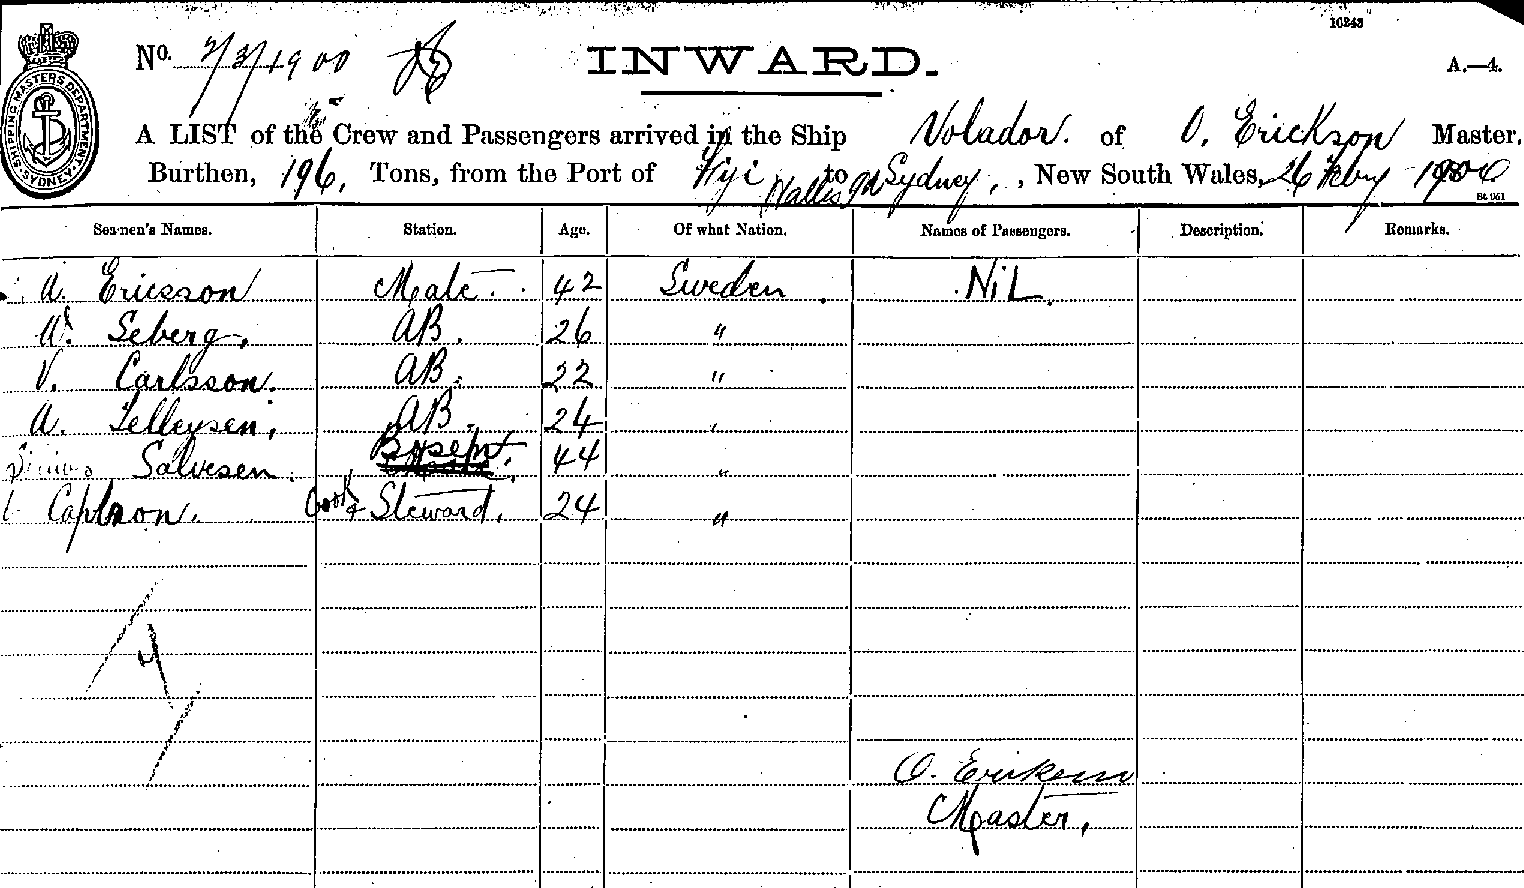 10243
No. 2/3/1900
INWARD.
A.—4.
SHIPPING MASTERS DEPARTMENT. SYDNEY
A LIST of the Crew and Passengers arrived in the Ship Volador. of O. Erickson Master,
Burthen, 196, Tons, from the Port of Fiji Wallis Id to Sydney, , New South Wales, 26 Feby 1900
St 951
Seamen's Names. Station. Age. Of what Nation. Names of Passengers. Description. Remarks.
A. Ericsson Mate. 42 Sweden. Nil.
W. Seberg. AB. 26 "
V. Carlsson. AB. 22 "
A. Telleysen. AB. 24 "
Salvesen. 44 "
Carlson. Cook & Steward. 24 "
O. Erikson
Master.